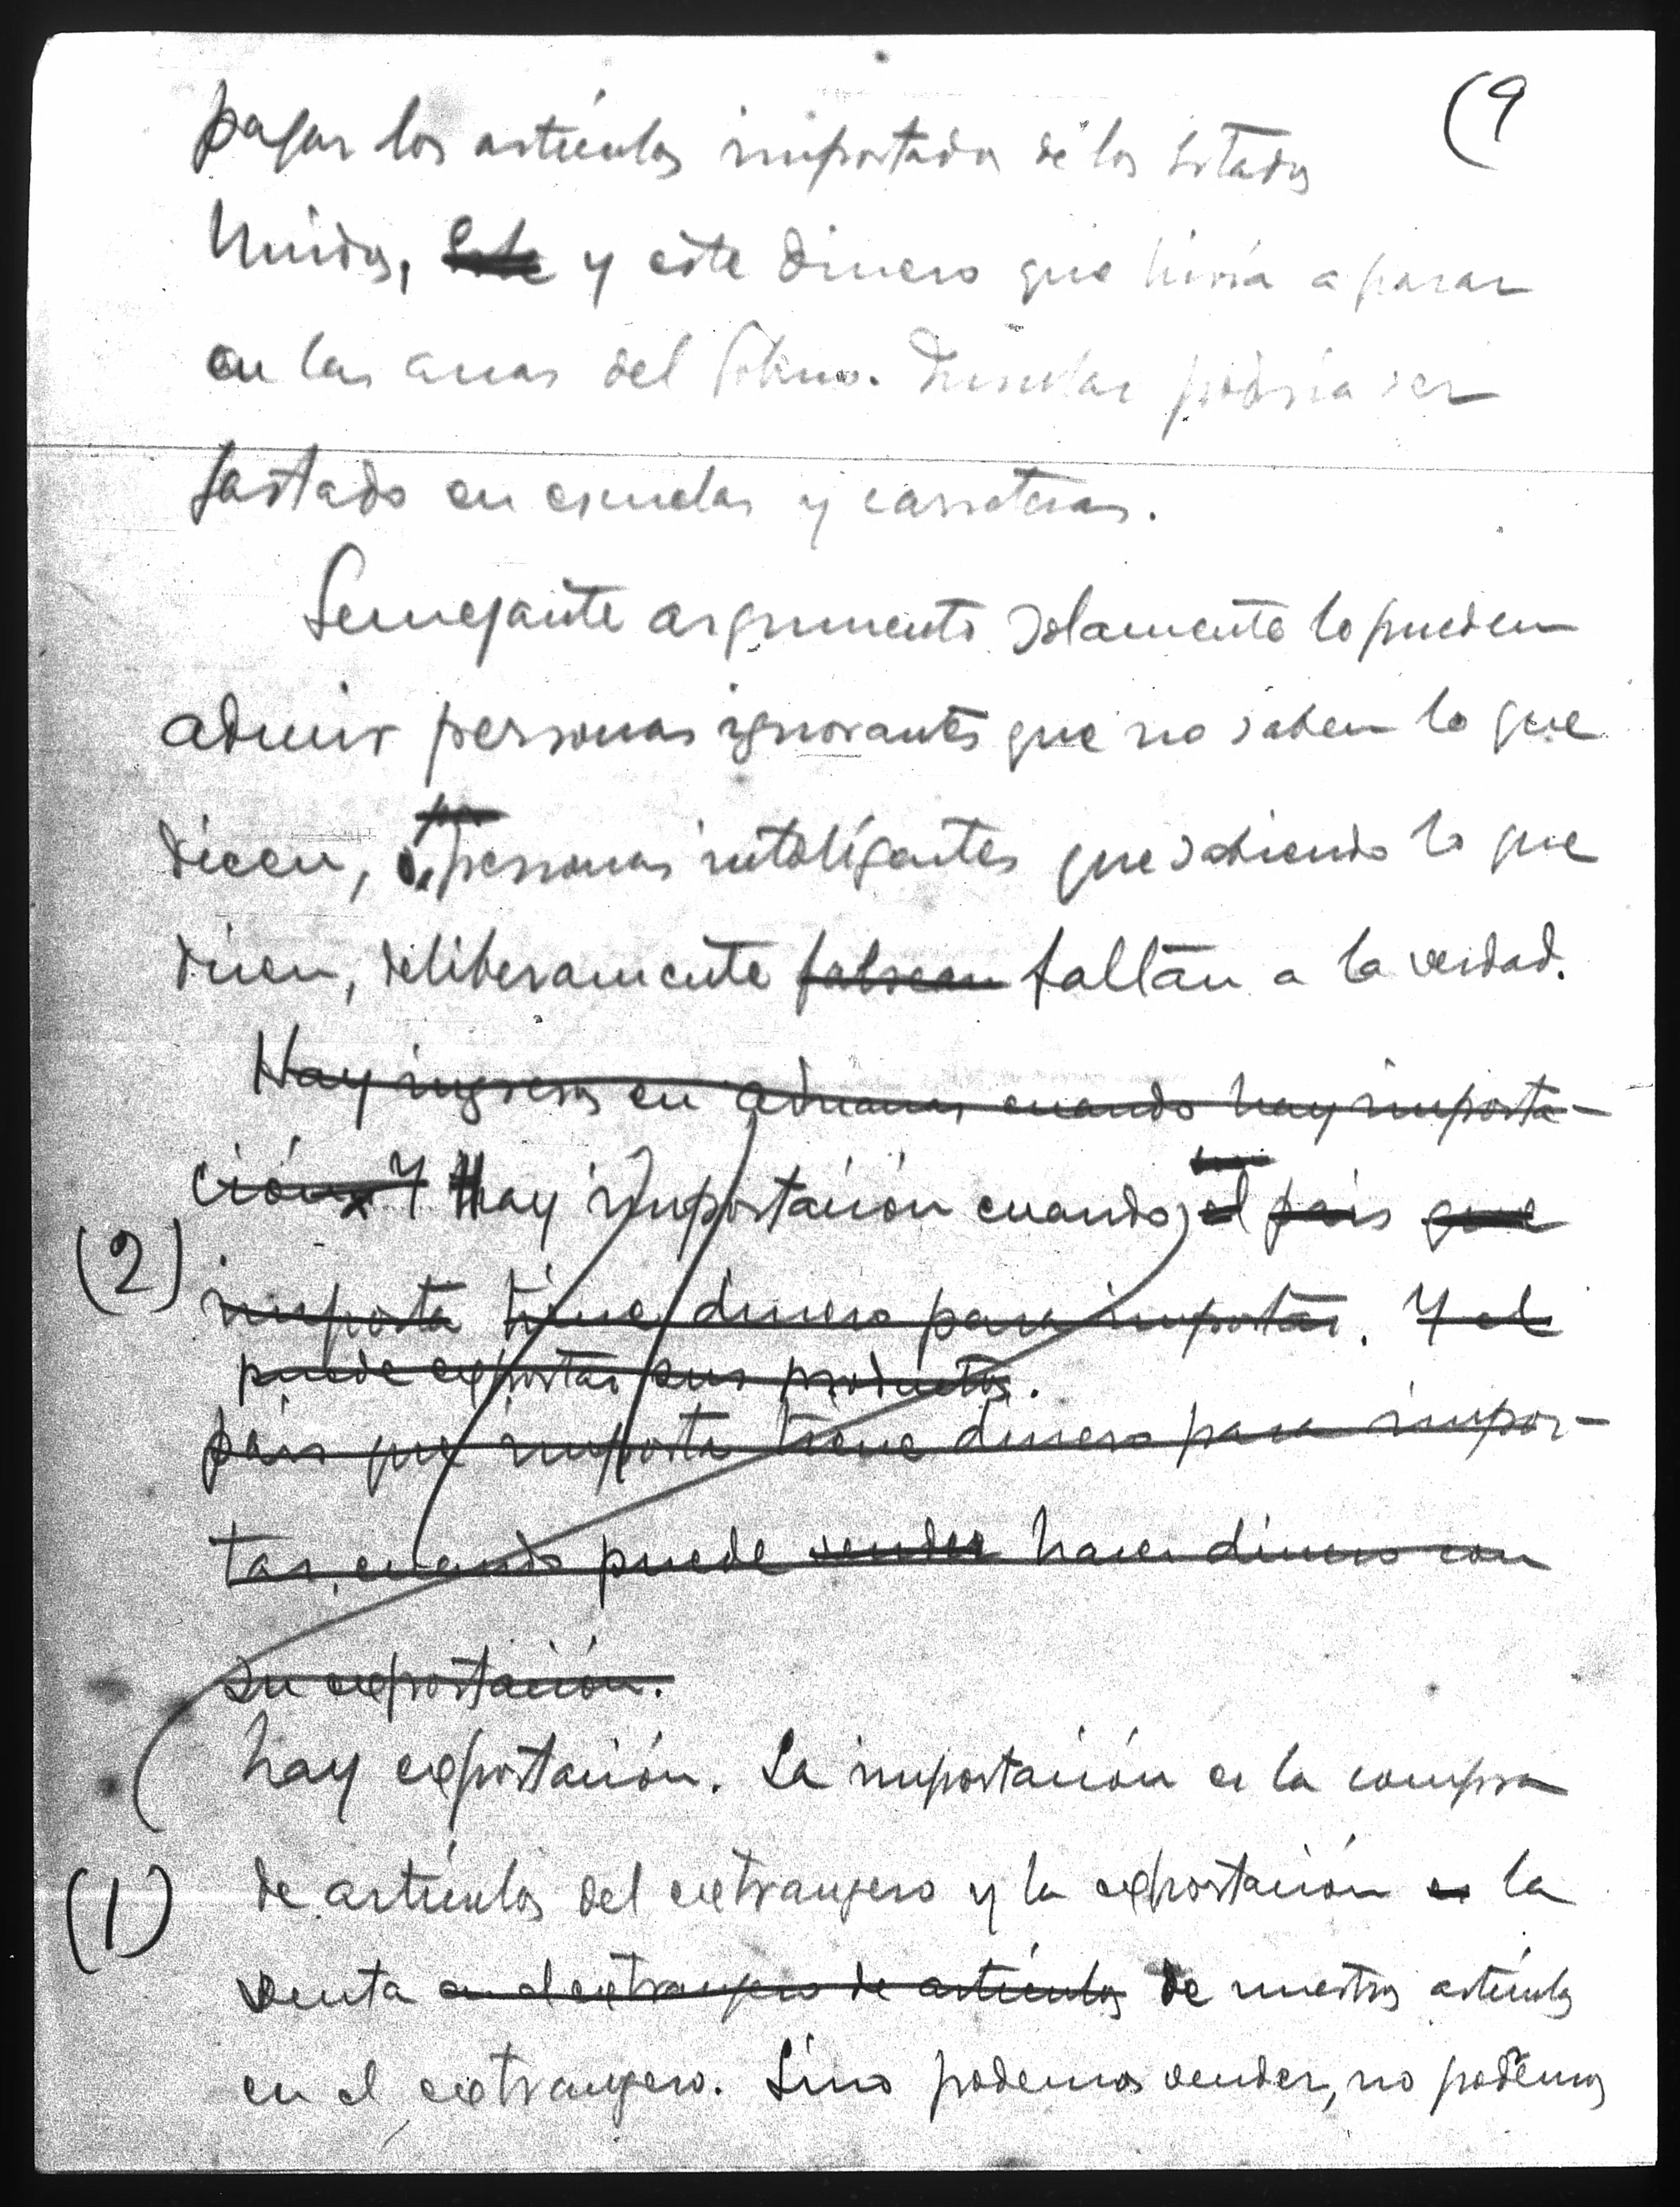 (9
pagar los artículos importados de los Estados
Unidos, Este y este dinero que hiría a parar
en las arcas del Gobno. Insular podría ser
gastado en escuelas y carreteras.
Semejante argumento solamente lo pueden
aducir personas ignorantes que no saben lo que
dicen, o personas inteligentes que sabiendo lo que
dicen, deliberamente falsean faltan a la verdad.
Hay ingresos en aduanas cuando hay importa-
ción. Y Hay importación cuando el país que
(2)
importa tiene dinero para importar. Y el
puede exportar sus productos.
país que importa tiene dinero para impor-
tar cuando puede vender hacer dinero con
su exportación.
hay exportación. La importación es la compra
(1)
de artículos del extrangero y la exportación es la
venta en el extrangero de artículos de nuestros artículos
en el extrangero. Sino podemos vender, no podemos